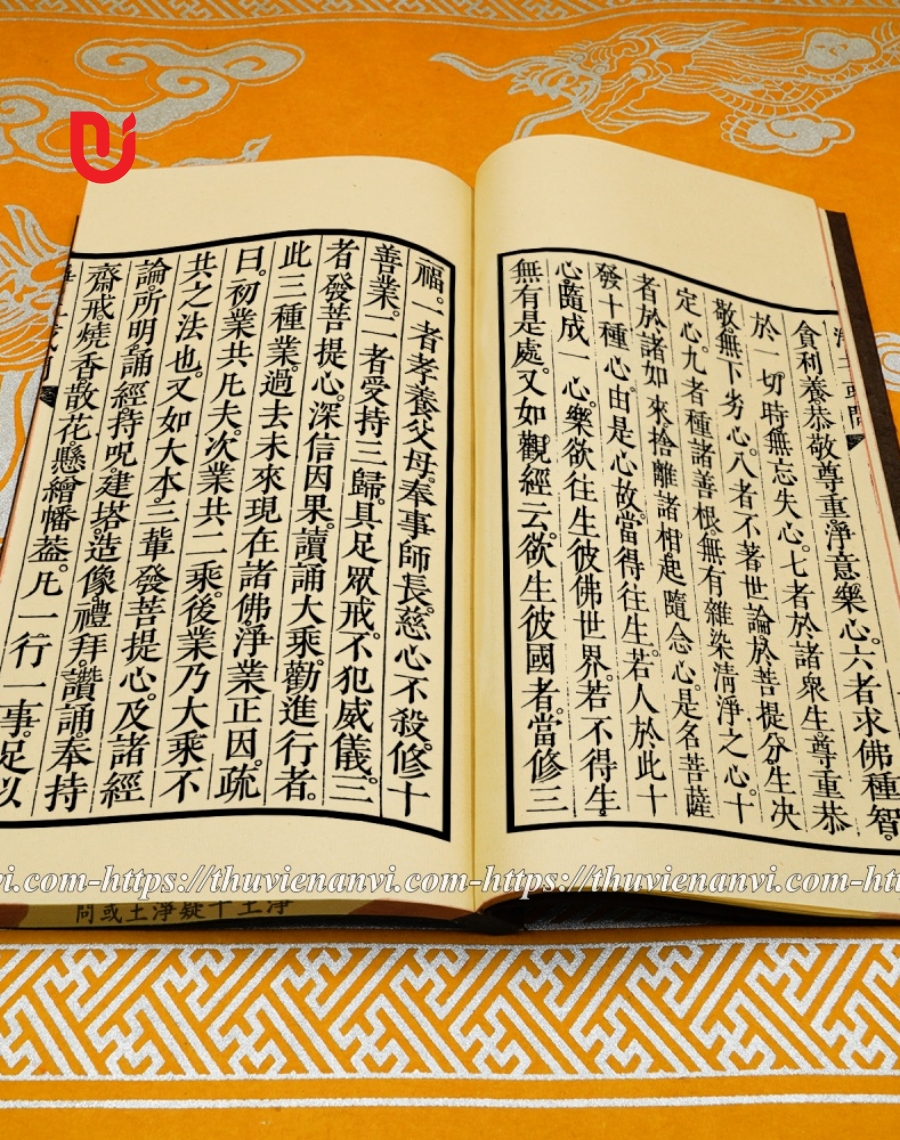 淨土或問
貪利養。恭敬尊重。淨意樂心。六者求佛種智。
於一切時無忘失心。七者於諸衆生。尊重恭
敬無下劣心。八者不著世論。於菩提分生決
定心。九者種諸善根。無有雜染清淨之心。十
者於諸如來。捨離諸相。起隨念心。是名菩薩
發十種心。由是心故。當得往生。若人於此十
心。隨成一心。樂欲往生彼佛世界。若不得生。
無有是處。又如觀經云。欲生彼國者。當修三
福。一者孝養父母。奉事師長。慈心不殺。修十
善業。二者受持三歸。具足眾戒。不犯威儀。三
者發菩提心。深信因果。讀誦大乘。勸進行者。
此三種業。過去未來現在諸佛。淨業正因。疏
曰。初業共凡夫。次業共二乘。後業乃大乘不
共之法也。又如大本。三輩發菩提心。及諸經
論所明。誦經。持呪。建塔。造像。禮拜。讚誦。奉持
齋戒。燒香。散花。懸繒幡葢。凡一行一事。足以
vi.com-https://thuvienanvi.com-https://thuvienanvi.com-htt
淨土十疑淨土或問